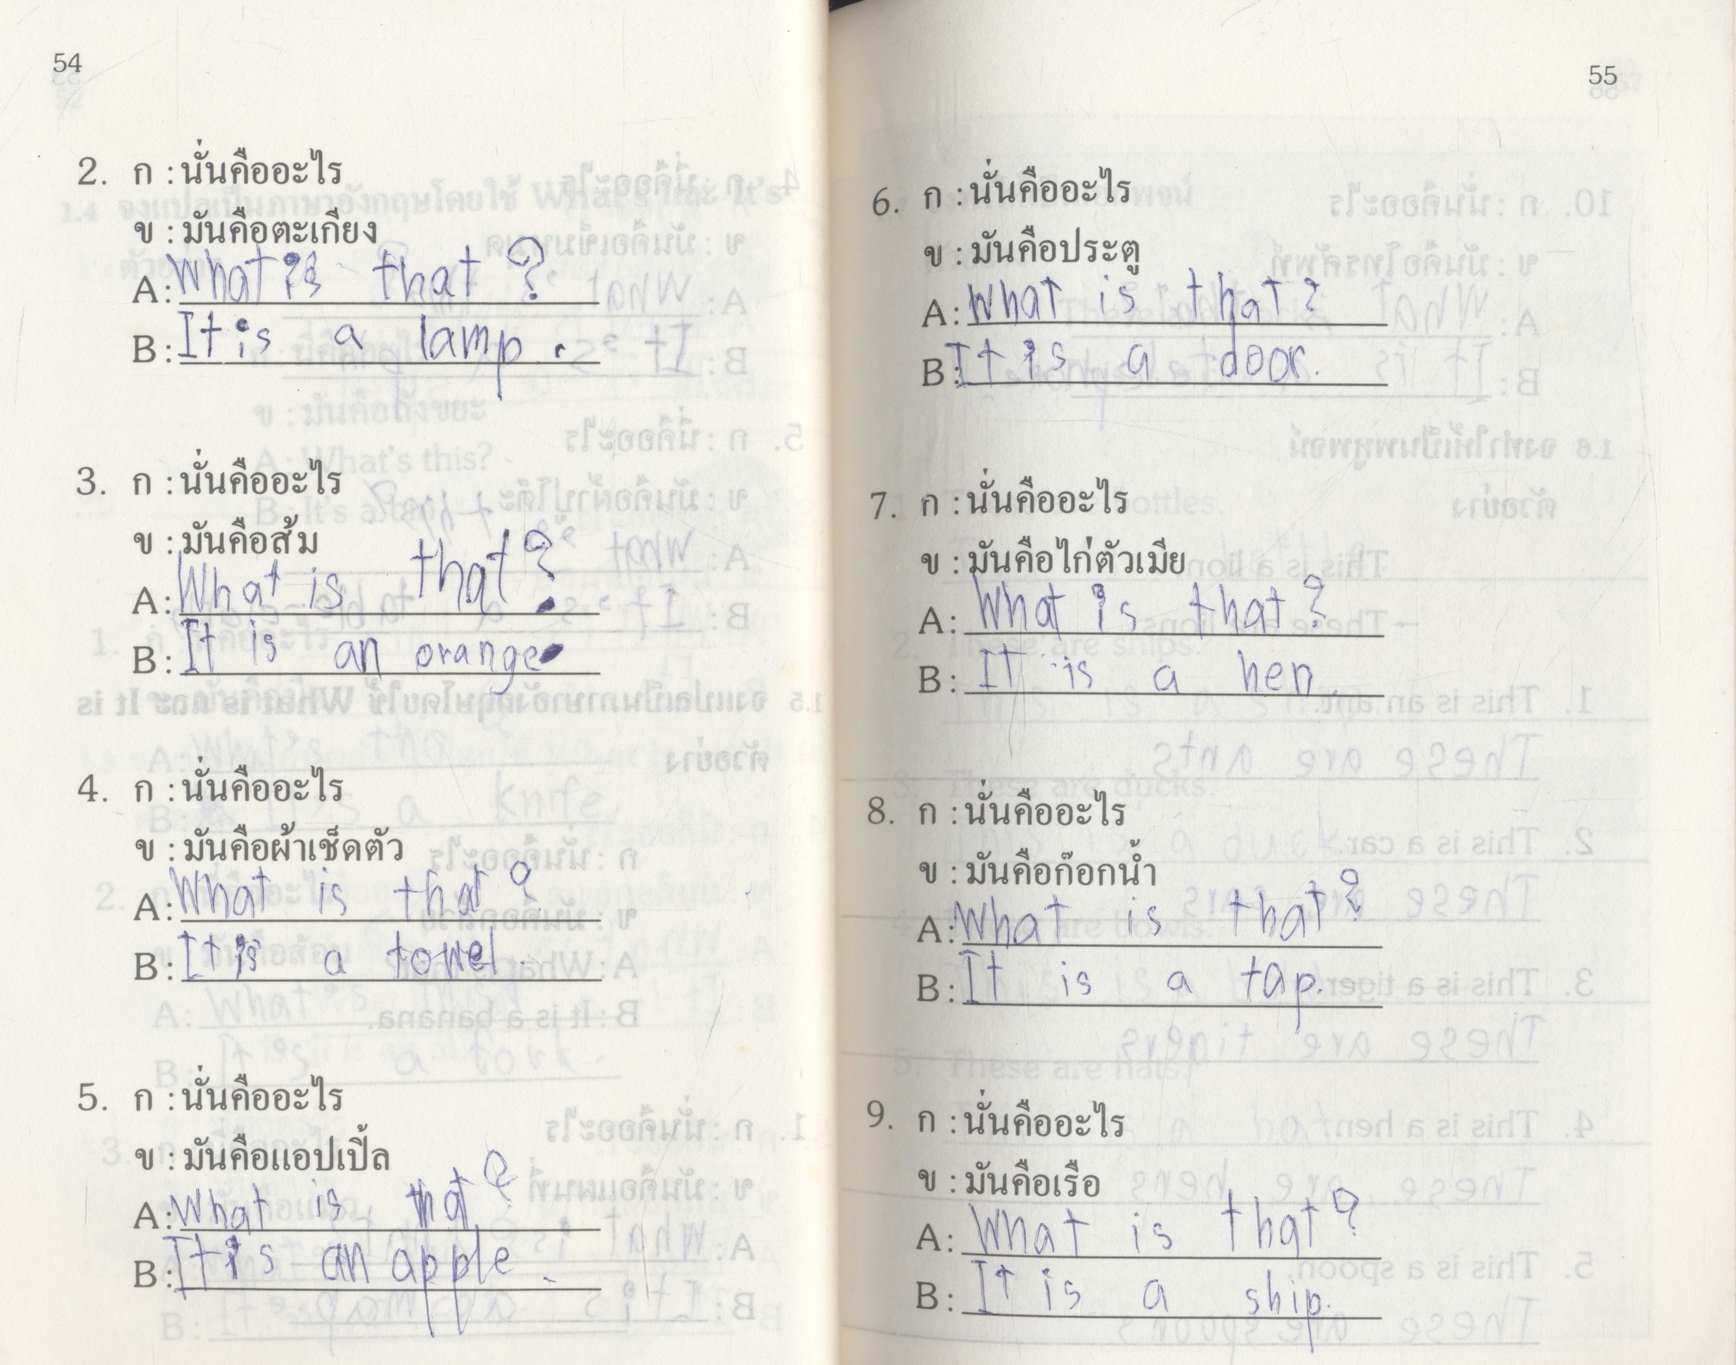 54
2. ก : นั่นคืออะไร
ข : มันคือตะเกียง
A: What is that ?
B: It is a lamp .
3. ก : นั่นคืออะไร
ข : มันคือส้ม
A: What is that ?
B: It is an orange.
4. ก : นั่นคืออะไร
ข : มันคือผ้าเช็ดตัว
A: What is that ?
B: It is a towel .
5. ก : นั่นคืออะไร
ข : มันคือแอปเปิ้ล
A: What is that ?
B: It is an apple .
55
6. ก : นั่นคืออะไร
ข : มันคือประตู
A: What is that ?
B: It is a door.
7. ก : นั่นคืออะไร
ข : มันคือไก่ตัวเมีย
A: What is that ?
B: It is a hen .
8. ก : นั่นคืออะไร
ข : มันคือก๊อกน้ำ
A: What is that ?
B: It is a tap.
9. ก : นั่นคืออะไร
ข : มันคือเรือ
A: What is that ?
B: It is a ship.